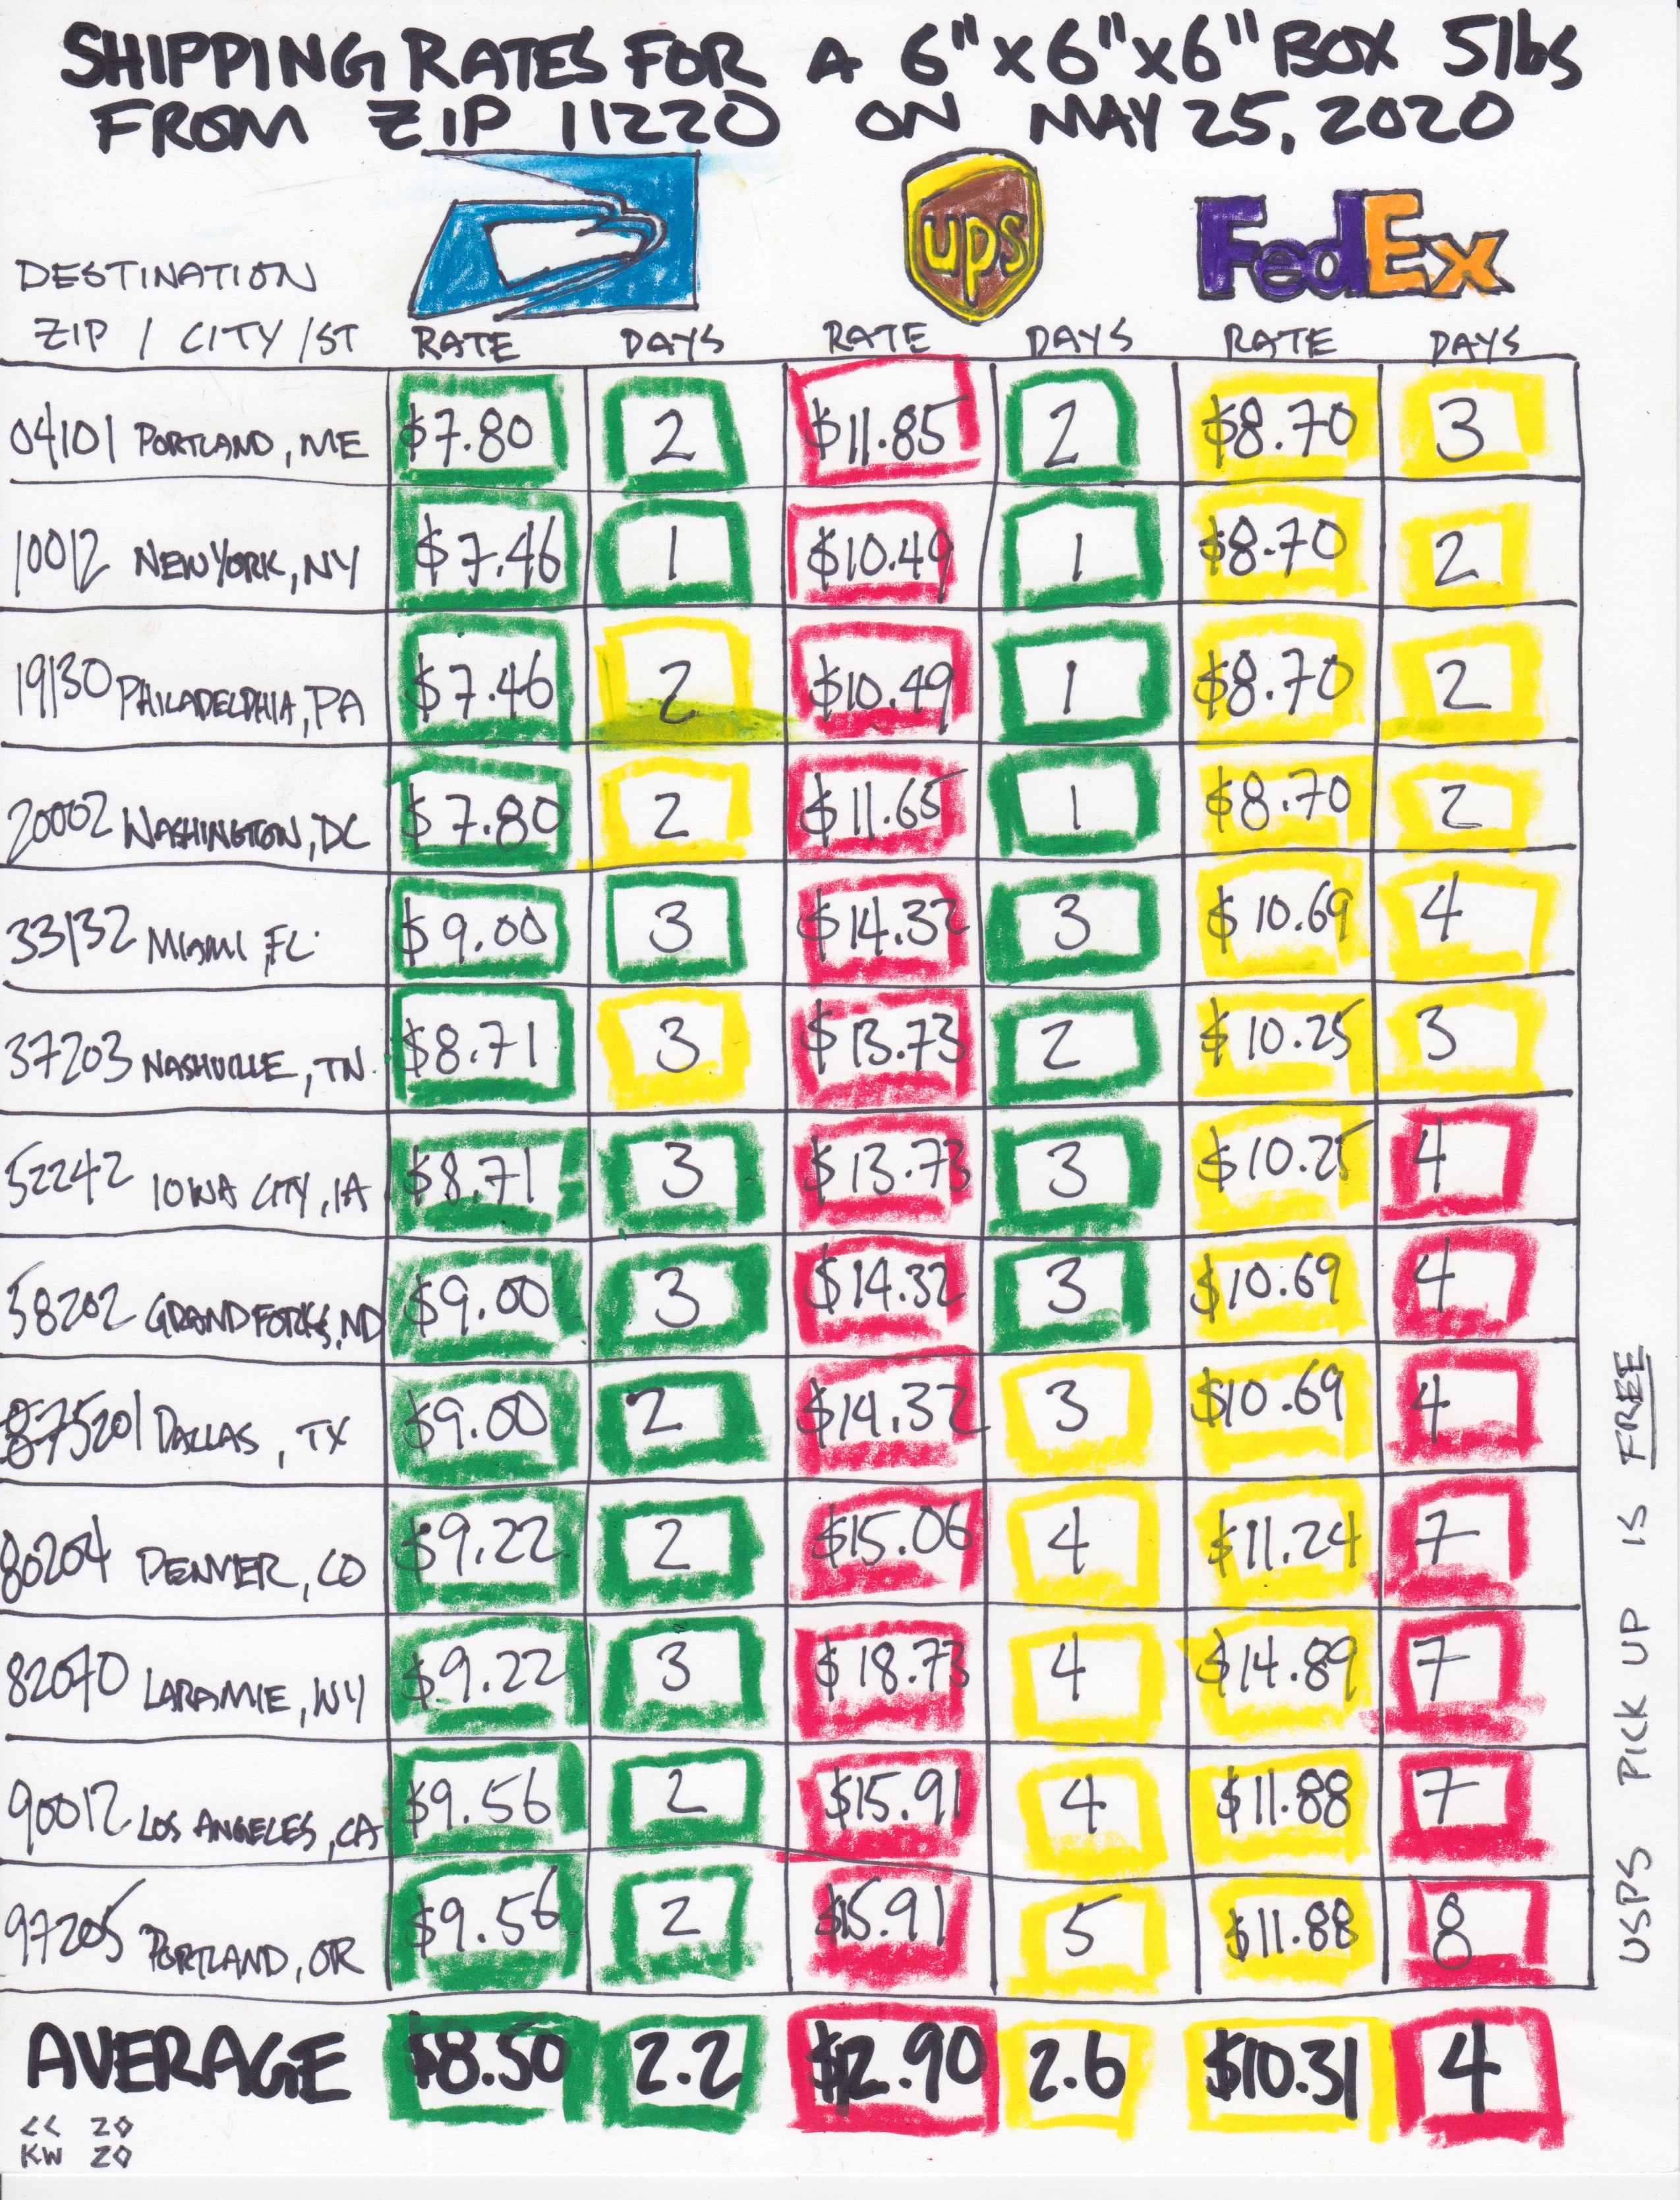 SHIPPING RATES FOR A 6"x6"x6" BOX 5lbs
FROM ZIP 11220 ON MAY 25, 2020
ups
FedEx
DESTINATION
ZIP / CITY / ST RATE DAYS RATE DAYS RATE DAYS
04101 PORTLAND, ME $7.80 2 $11.85 2 $8.70 3
10012 NEW YORK, NY $7.46 1 $10.49 1 $8.70 2
19130 PHILADELPHIA, PA $7.46 2 $10.49 1 $8.70 2
20002 WASHINGTON, DC $7.80 2 $11.65 1 $8.70 2
33132 MIAMI, FL $9.00 3 $14.32 3 $10.69 4
37203 NASHVILLE, TN $8.71 3 $13.73 2 $10.25 3
52242 IOWA CITY, IA $8.71 3 $13.73 3 $10.25 4
58202 GRAND FORKS, ND $9.00 3 $14.32 3 $10.69 4
75201 DALLAS, TX $9.00 2 $14.32 3 $10.69 4
80204 DENVER, CO $9.22 2 $15.06 4 $11.24 7
82070 LARAMIE, WY $9.22 3 $18.73 4 $14.89 7
90012 LOS ANGELES, CA $9.56 2 $15.91 4 $11.88 7
97205 PORTLAND, OR $9.56 2 $15.91 5 $11.88 8
AVERAGE $8.50 2.2 $12.90 2.6 $10.31 4
CC 20
KW 20
USPS PICK UP IS FREE